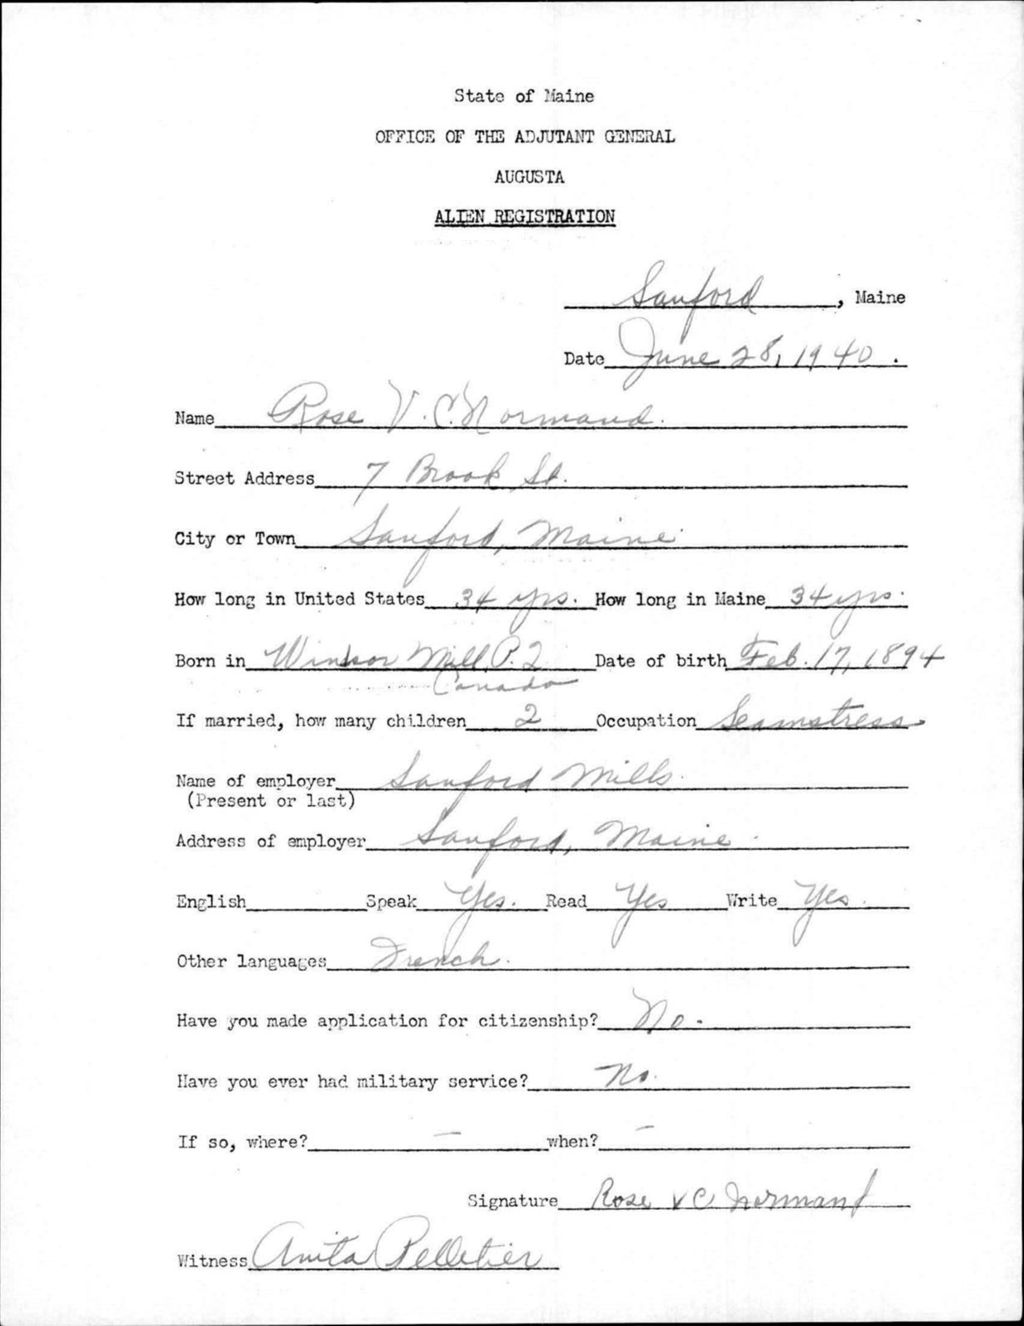 State of Maine
OFFICE OF THE ADJUTANT GENERAL
AUGUSTA
ALIEN REGISTRATION
Sanford, Maine
Date June 28, 1940.
Name Rose V. C. Normand.
Street Address 7 Brook St.
City or Town Sanford, Maine
How long in United States 34 yrs. How long in Maine 34 yrs.
Born in Windsor Mill P.2 Date of birth Feb. 17, 1894
Canada
If married, how many children 2 Occupation Seamstress
Name of employer Sanford Mills.
(Present or last)
Address of employer Sanford, Maine.
English Speak Yes. Read Yes Write Yes.
Other languages French.
Have you made application for citizenship? No.
Have you ever had military service? No.
If so, where? — when? —
Signature Rose V C Normand
Witness Anita Pelletier